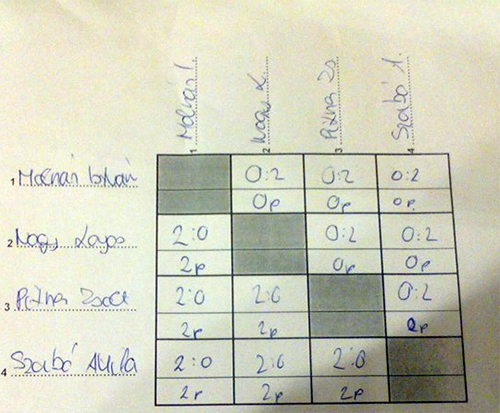 Molnár I. Nagy L. Pézna Zs. Szabó A.
1 2 3 4
1 Molnár István 0:2 0:2 0:2
0p 0p 0p
2 Nagy Lajos 2:0 0:2 0:2
2p 0p 0p
3 Zsolt 2:0 2:0 0:2
2p 2p 0p
4 Szabó Attila 2:0 2:0 2:0
2p 2p 2p